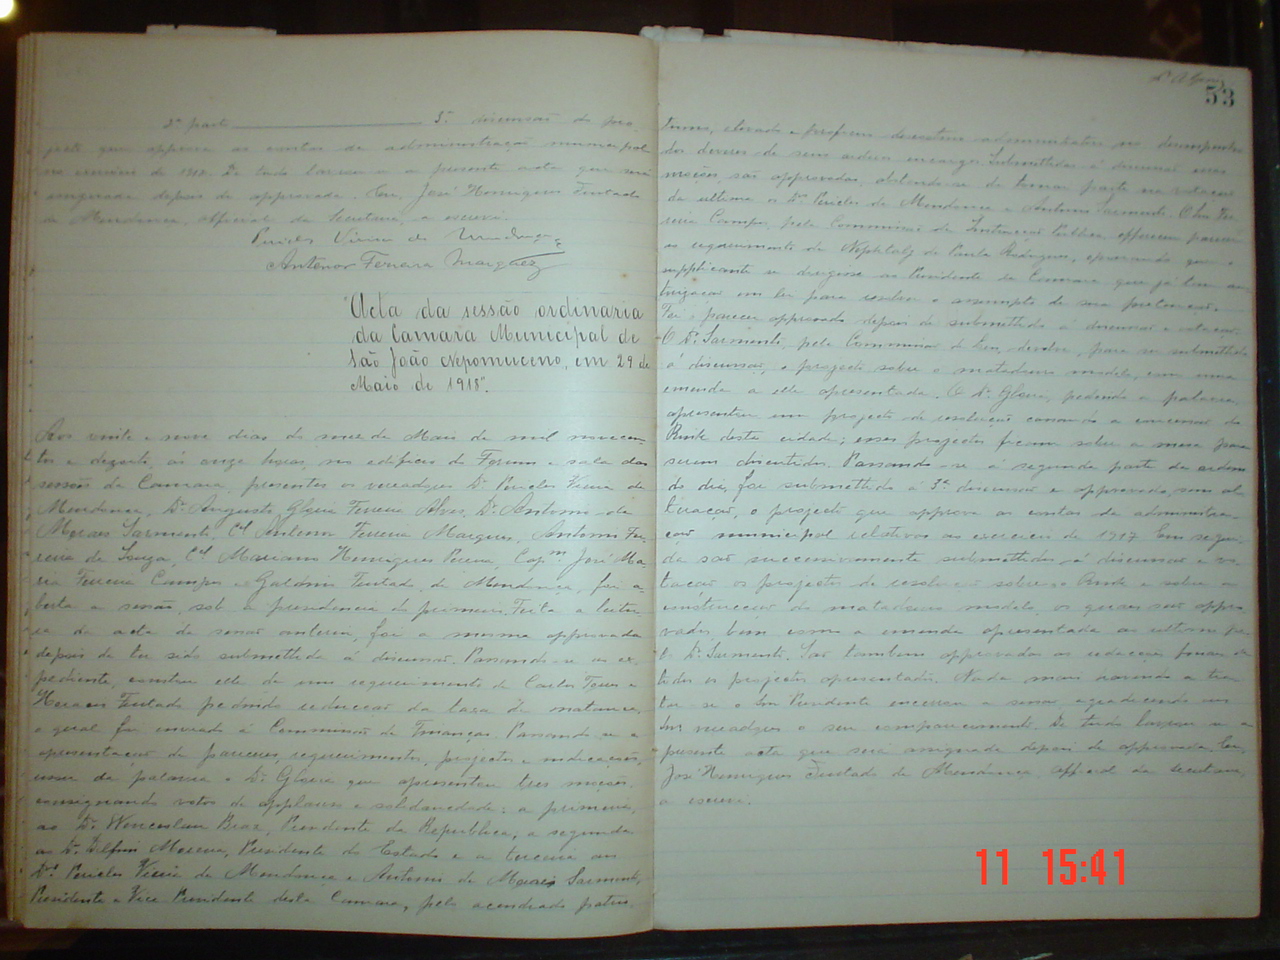 2ª parte 3ª discussão do pro-
jecto que approva as contas da administração municipal
no exercicio de 1917. De tudo lavrou-se a presente acta que será
assignada depois de approvada. Eu, José Henriques Furtado
de Mendonça, official da Secretaria, a escrevi.
Pericles Vieira de Mendonça
Antenor Ferreira Marques
"Acta da sessão ordinaria
da Camara Municipal de
São João Nepomuceno, em 29 de
Maio de 1918".
Aos vinte e nove dias do mez de Maio de mil novecen-
tos e dezoito, ás onze horas, no edificio do Forum e sala das
sessões da Camara, presentes os vereadores Dr. Pericles Vieira de
Mendonça, Dr. Augusto Gloria Ferreira Alves, Dr. Antonio de
Moraes Sarmento, Cel Antenor Ferreira Marques, Antonio Fer-
reira de Souza, Cel Mariano Henriques Pereira, Capm José Ma-
ria Ferreira Campos e Galdino Furtado de Mendonça, foi a-
berta a sessão, sob a presidencia do primeiro. Feita a leitu-
ra da acta da sessão anterior, foi a mesma approvada
depois de ter sido submettida á discussão. Passando-se ao ex-
pediente, constou elle de um requerimento de Carlos e
Furtado pedindo reducção da taxa de matança,
o qual foi enviado á Commissão de Finanças. Passando-se a
apresentação de pareceres, requerimentos, projectos e indicações,
usou da palavra o Dr. Gloria que apresentou tres moções,
consignando votos de applauso e solidariedade: a primeira,
ao Dr. Wenceslau Braz, Presidente da Republica, a segunda
ao Dr. Delfim Moreira, Presidente do Estado e a terceira aos
Drs. Pericles Vieira de Mendonça e Antonio de Moraes Sarmento,
Presidente e Vice Presidente desta Camara, pelo acendrado patrio-
53
tismo, elevado e administrativo no desempenho
dos deveres de seus arduos encargos. Submettidas á discussão essas
moções são approvadas, abstendo-se de tomar parte na votação
da ultima os Drs. Pericles de Mendonça e Antonio Sarmento. O Snr. Fer-
reira Campos, pela Commissão de Instrucção Publica, offerece parecer
ao requerimento de Nephtaly de Paula Rodrigues, opinando que o
supplicante se dirigisse ao Presidente da Camara que já tem au-
torização em lei para resolver o assumpto de sua pretenção.
Foi o parecer approvado depois de submettido á discussão e votação.
O Dr. Sarmento, pela Commissão de Leis, devolve, para ser submettido
á discussão, o projecto sobre o matadouro modelo, com uma
emenda a elle apresentada. O Dr. Gloria, pedindo a palavra,
apresentou um projecto de resolução a
desta cidade; esses projectos ficam sobre a mesa para
serem discutidos. Passando-se á segunda parte da ordem
do dia, foi submettido á 3ª discussão e approvado, sem al-
teração, o projecto que approva as contas da administra-
ção municipal relativas ao exercicio de 1917. Em segui-
da são successivamente submettidos á discussão e vo-
tação os projectos de resolução sobre e sobre a
construcção do matadouro modelo, os quaes são appro-
vados, bem como a emenda apresentada ao ultimo pe-
lo Dr. Sarmento. São tambem approvadas as redacções finaes de
todos os projectos apresentados. Nada mais havendo a tra-
tar-se o Snr. Presidente encerrou a sessão, agradecendo aos
Snrs. vereadores o seu comparecimento. De tudo lavrou-se a
presente acta que será assignada depois de approvada. Eu,
José Henriques Furtado de Mendonça, official da secretaria,
a escrevi.
11 15:41